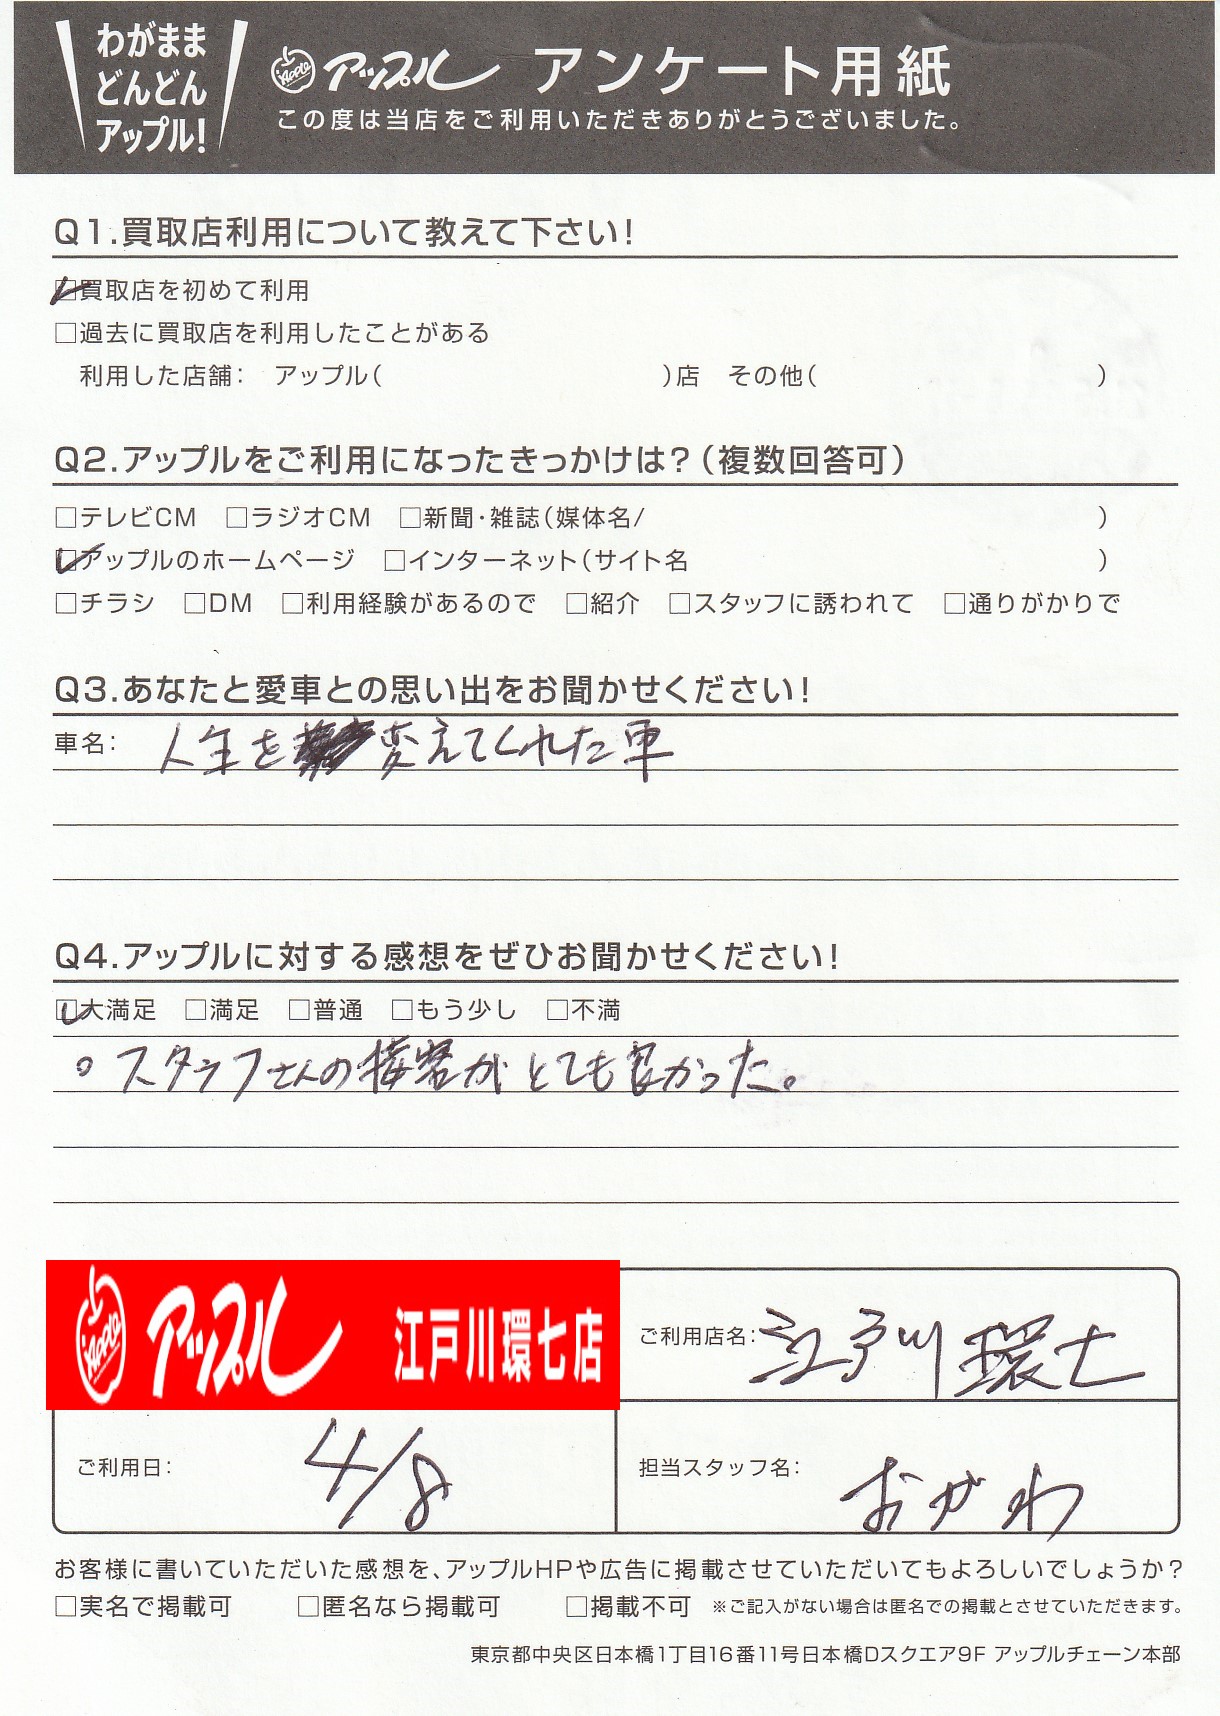 わがまま
どんどん
アップル!
Apple アップル アンケート用紙
この度は当店をご利用いただきありがとうございました。
Q1.買取店利用について教えて下さい!
☑買取店を初めて利用
□過去に買取店を利用したことがある
利用した店舗: アップル( )店 その他( )
Q2.アップルをご利用になったきっかけは?(複数回答可)
□テレビCM □ラジオCM □新聞・雑誌(媒体名/ )
☑アップルのホームページ □インターネット(サイト名 )
□チラシ □DM □利用経験があるので □紹介 □スタッフに誘われて □通りがかりで
Q3.あなたと愛車との思い出をお聞かせください!
車名: 人生を変えてくれた車
Q4.アップルに対する感想をぜひお聞かせください!
☑大満足 □満足 □普通 □もう少し □不満
。スタッフさんの接客がとても良かった。
Apple アップル 江戸川環七店
ご利用店名: 江戸川環七
ご利用日: 4/8
担当スタッフ名: おがわ
お客様に書いていただいた感想を、アップルHPや広告に掲載させていただいてもよろしいでしょうか?
□実名で掲載可 □匿名なら掲載可 □掲載不可 ※ご記入がない場合は匿名での掲載とさせていただきます。
東京都中央区日本橋1丁目16番11号日本橋Dスクエア9F アップルチェーン本部